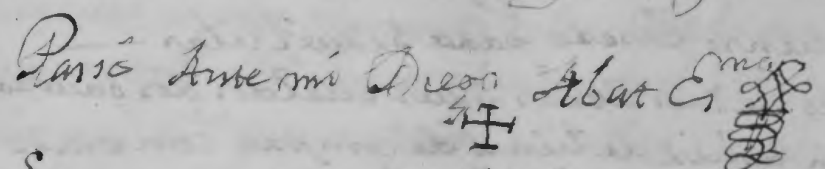 Passô Ante mi Diego Abat E^no